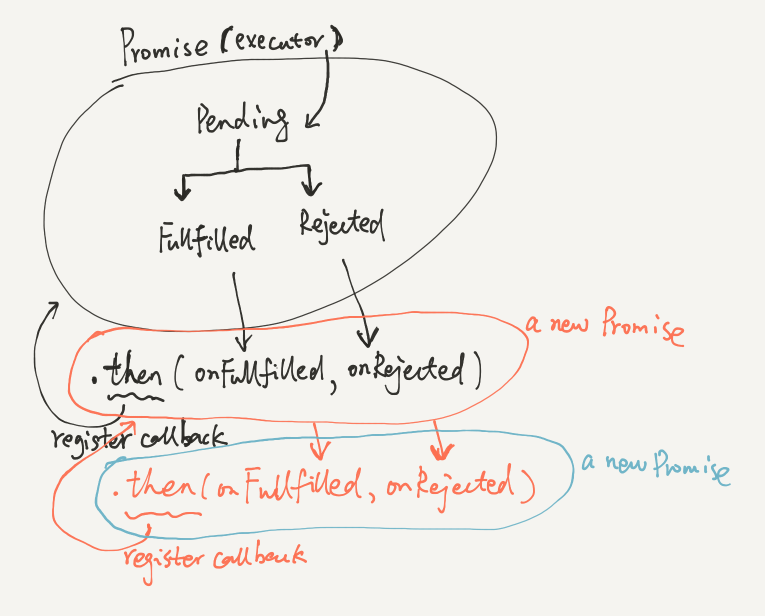 Promise (executor)
Pending
Fullfilled
Rejected
a new Promise
.then (onFullfilled, onRejected)
register callback
a new Promise
.then (onFullfilled, onRejected)
register callback